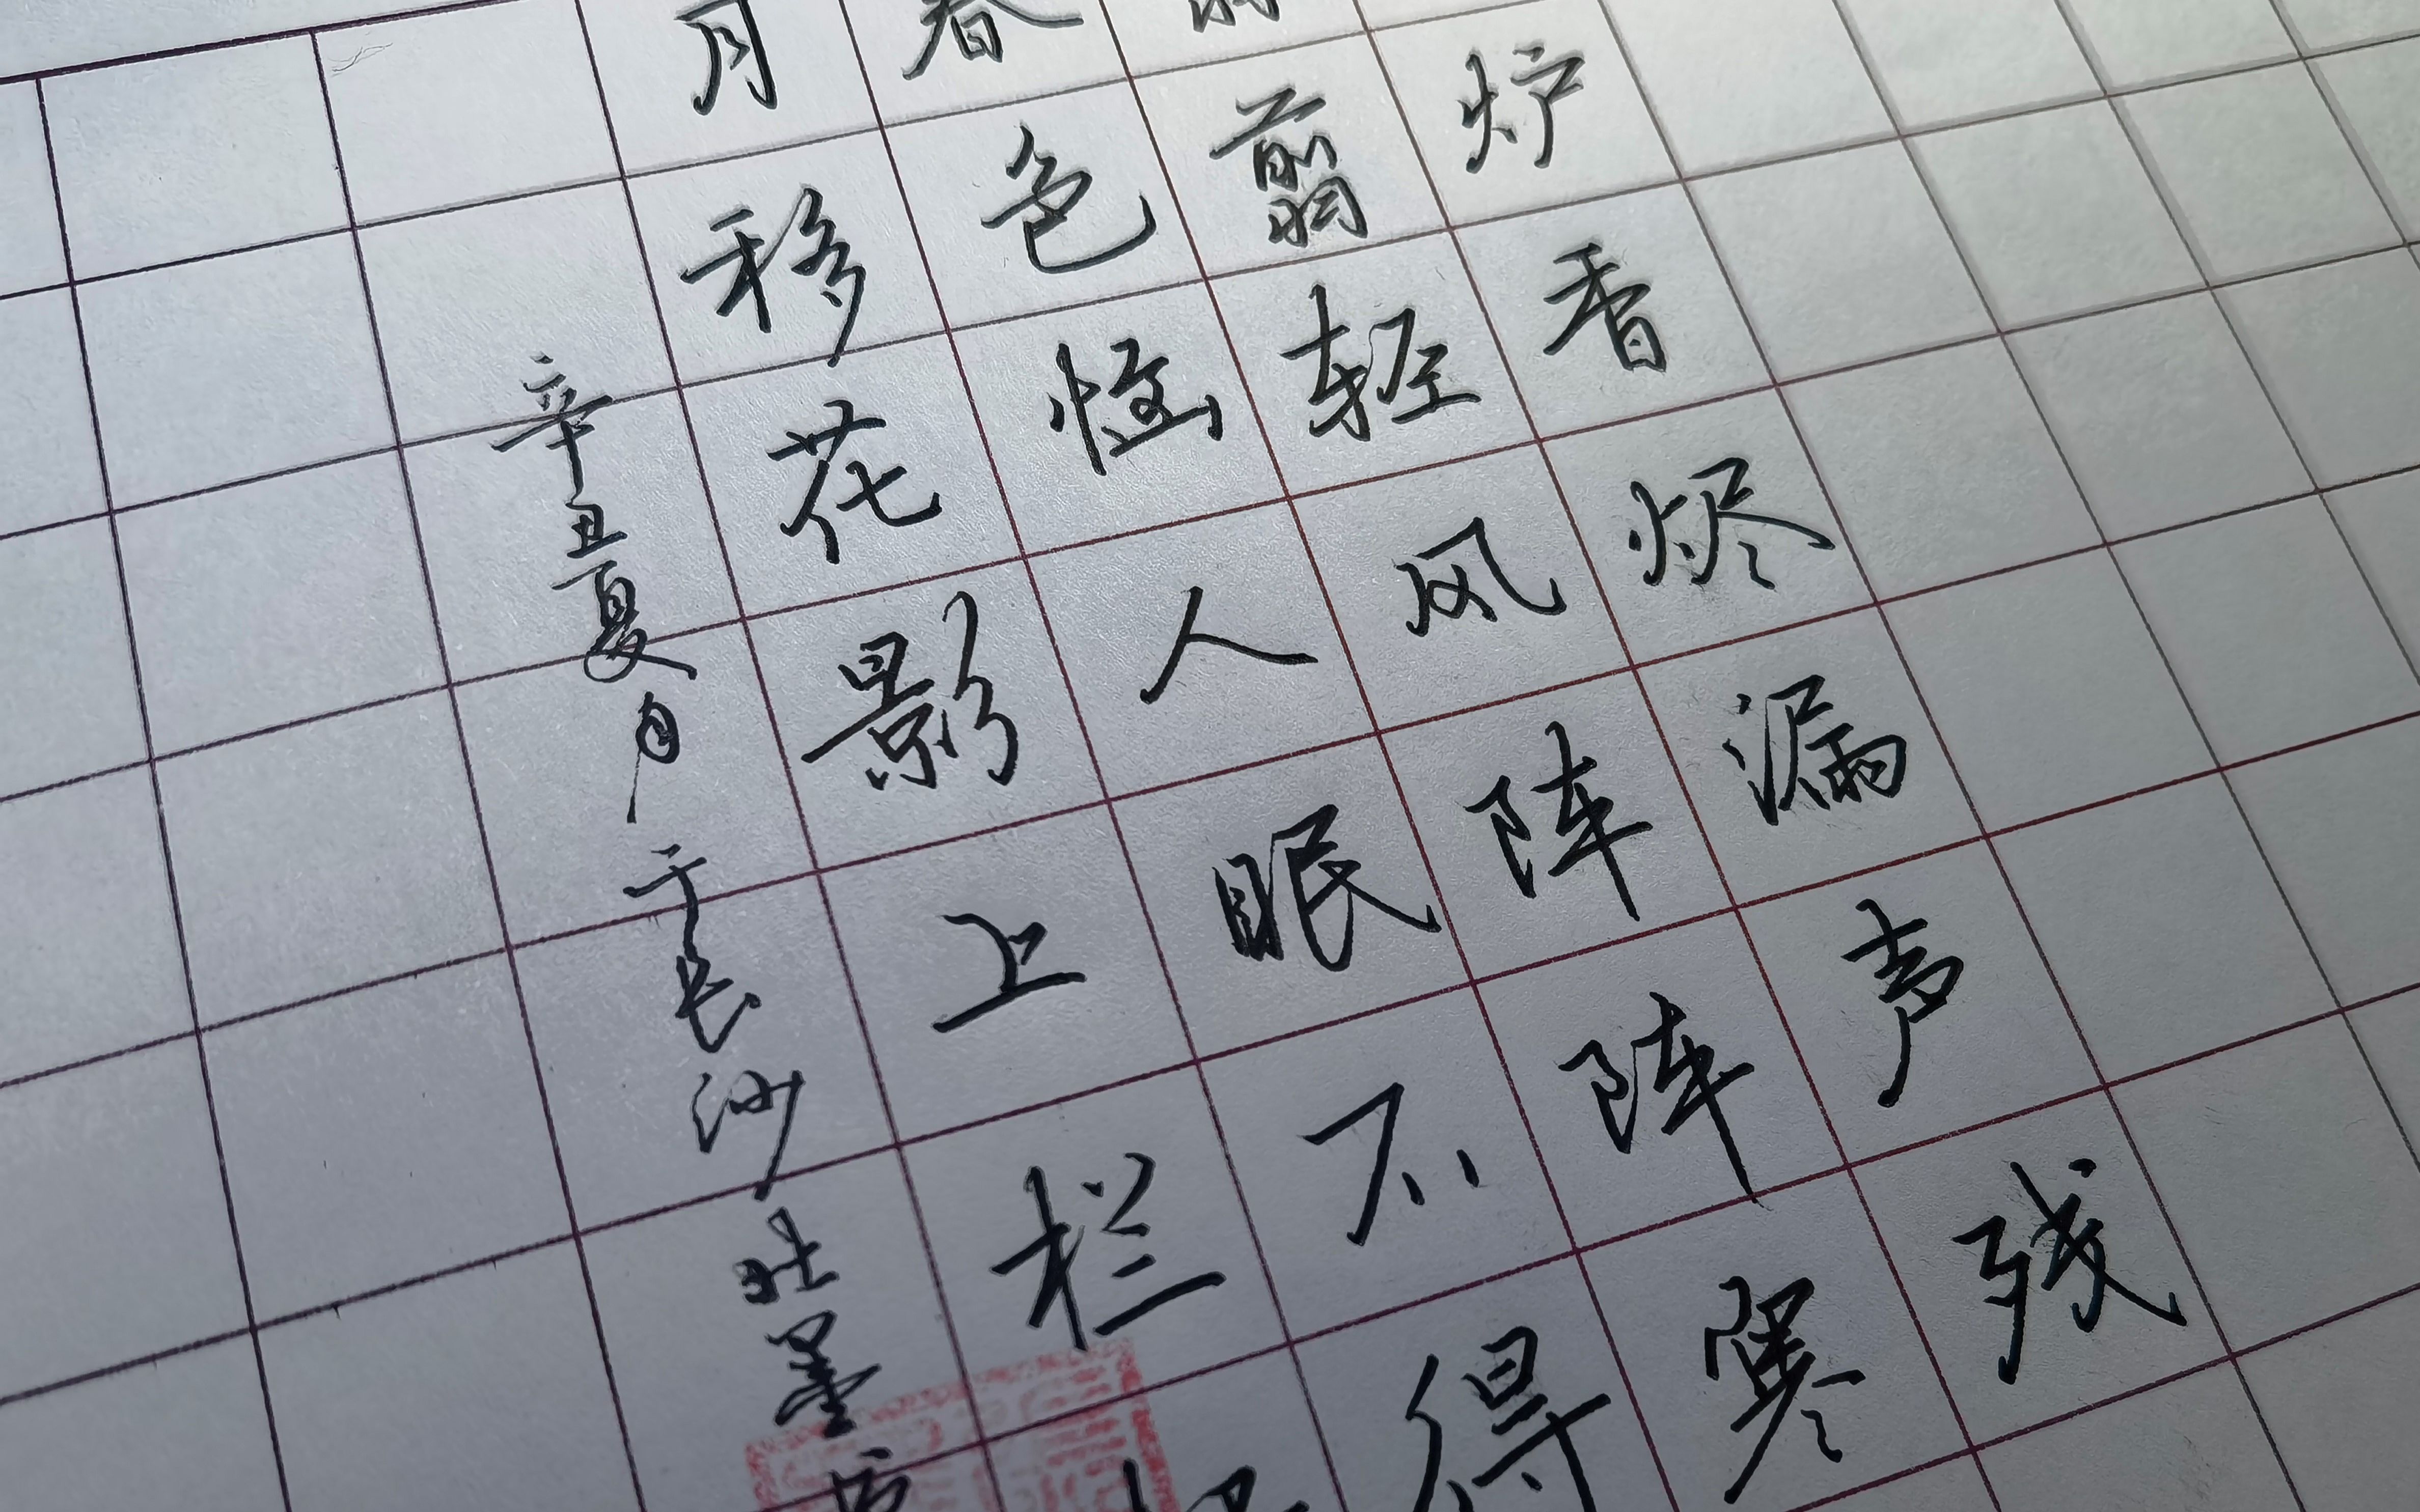 炉香烬漏声残
翦轻风阵阵寒
春色恼人眠不得
月移花影上栏
辛丑夏月于长沙